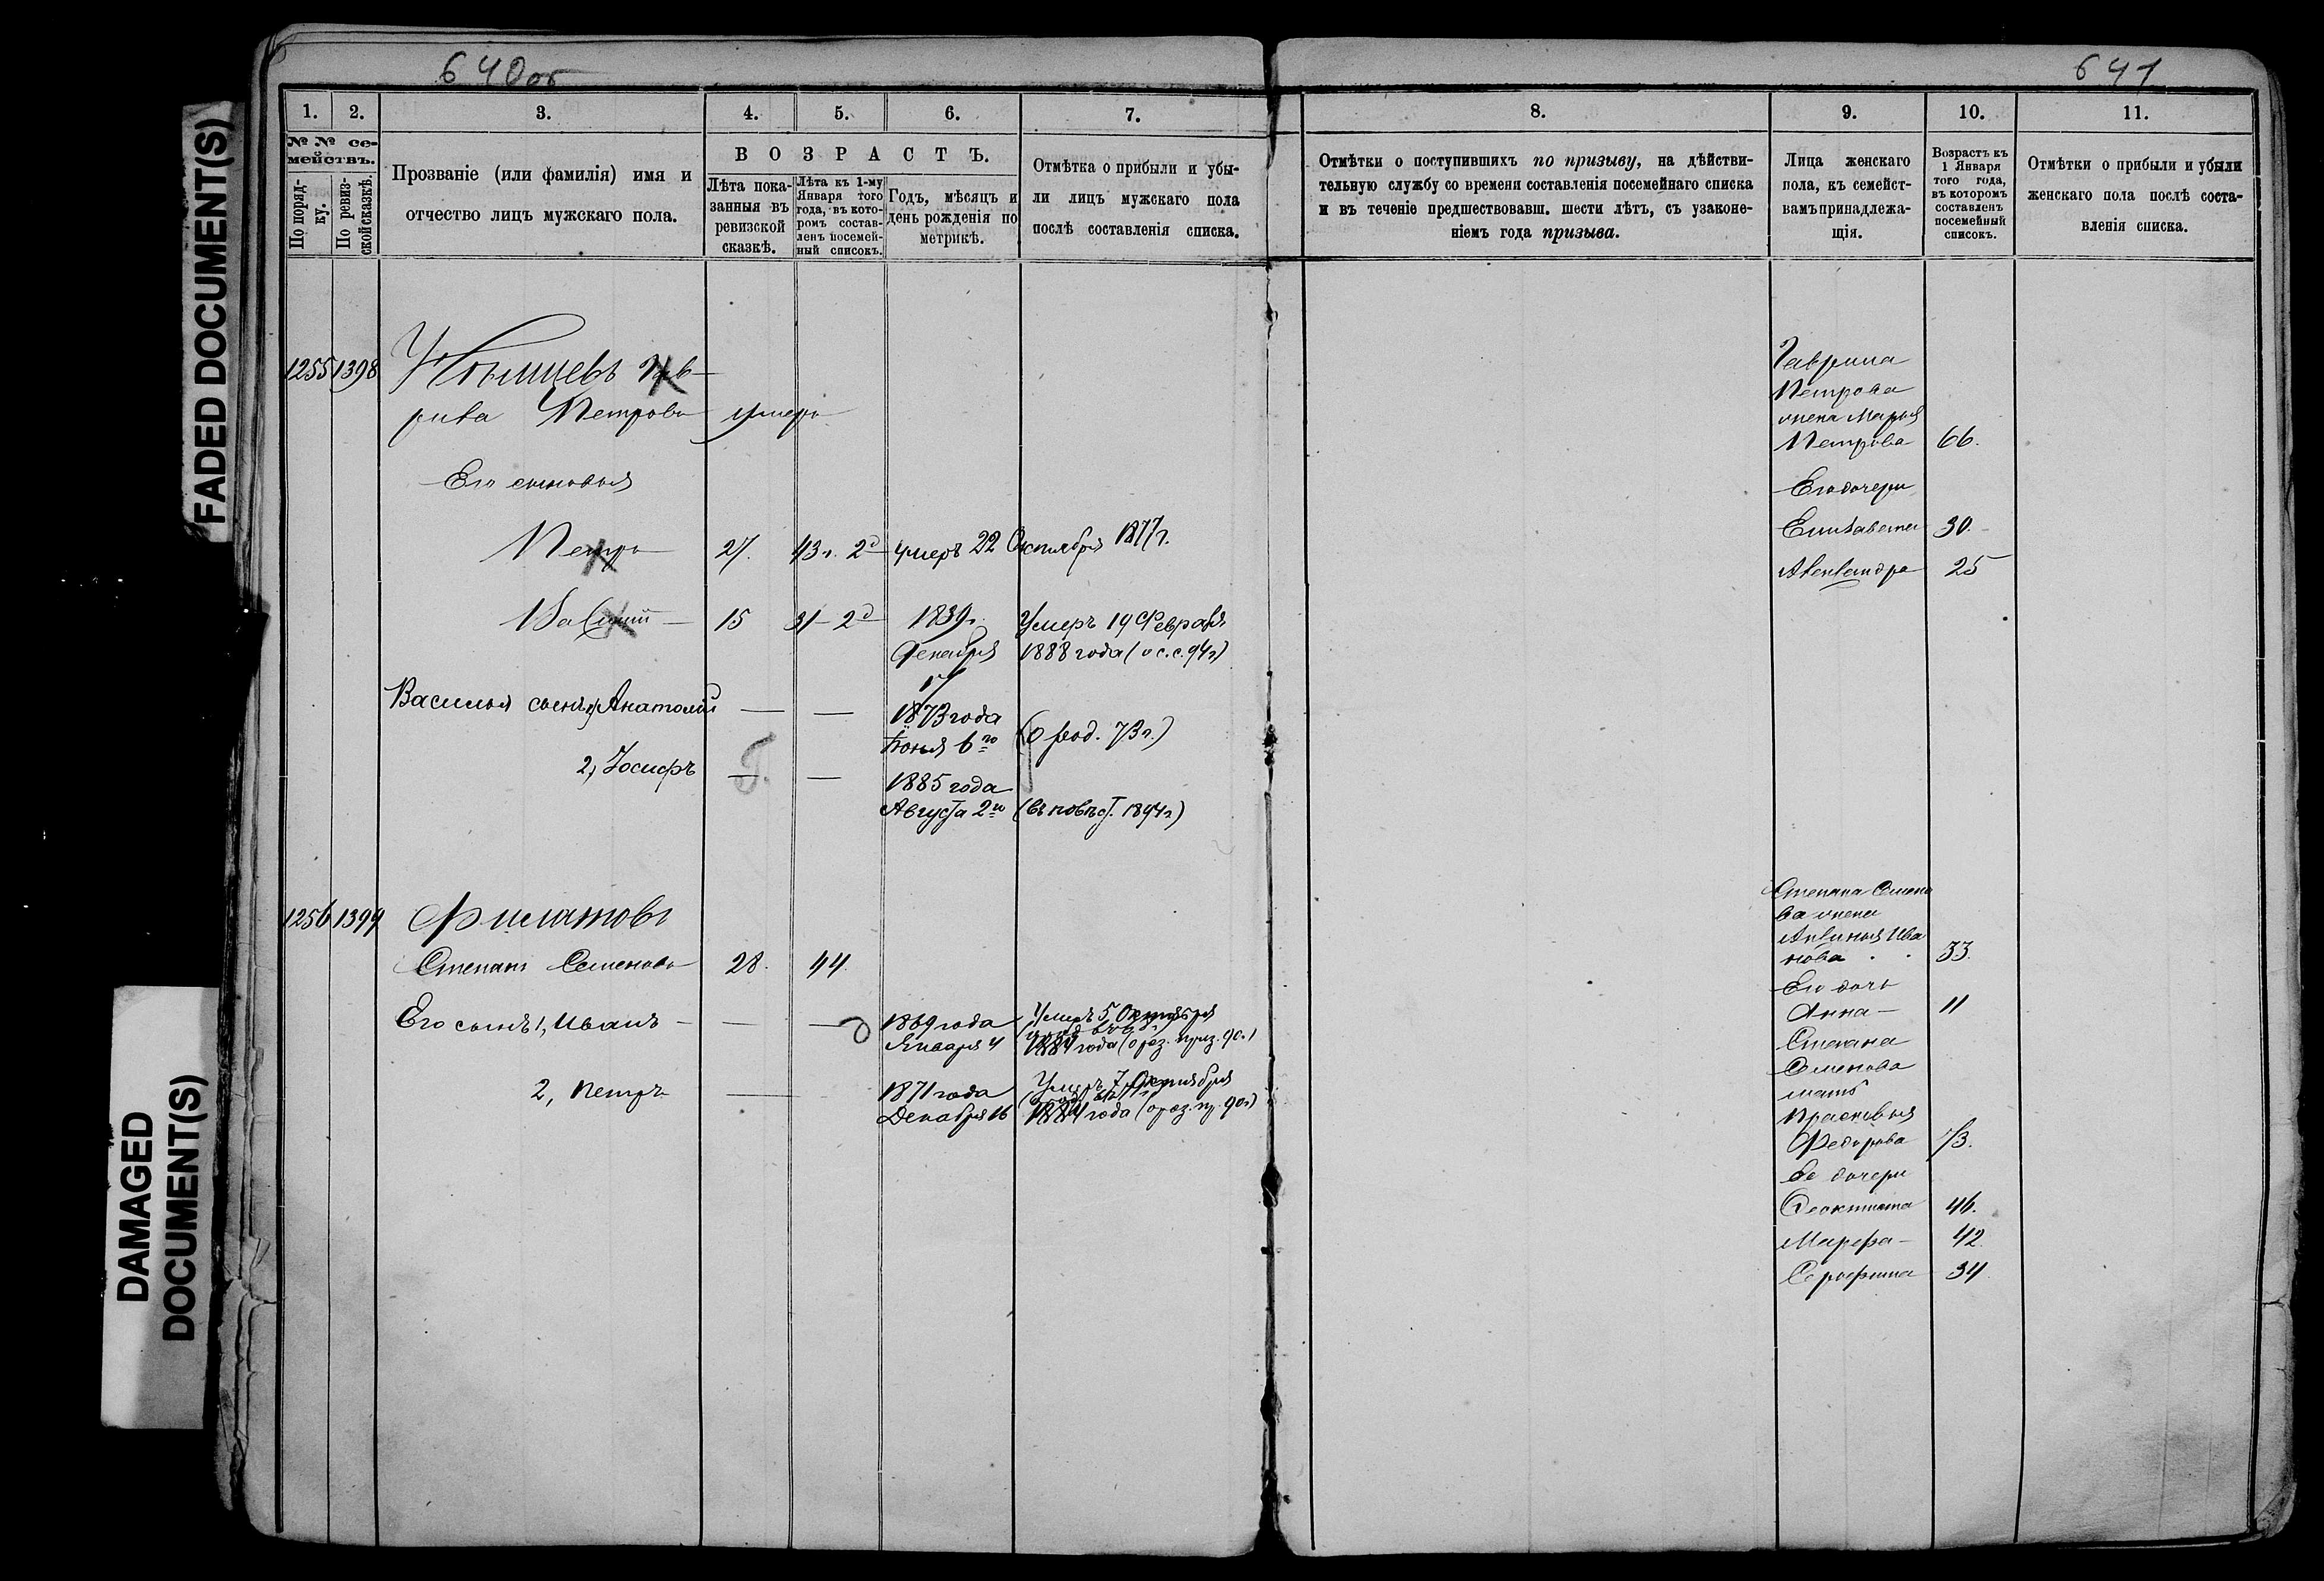 640об
641
FADED DOCUMENT(S)
DAMAGED
DOCUMENT(S)
1. 2. 3. 4. 5. 6. 7. 8. 9. 10. 11.
№ № се-
мействъ.
По поряд-
ку.
По ревиз-
ской сказкѣ.
Прозваніе (или фамилія) имя и
отчество лицъ мужскаго пола.
ВОЗРАСТЪ.
Лѣта пока-
занныя въ
ревизской
сказкѣ.
Лѣта къ 1-му
Января того
года, въ кото-
ромъ состав-
ленъ посемей-
ный списокъ.
Годъ, мѣсяцъ и
день рожденія по
метрикѣ.
Отмѣтка о прибыли и убы-
ли лицъ мужскаго пола
послѣ составленія списка.
Отмѣтки о поступившихъ по призыву, на дѣйстви-
тельную службу со времени составленія посемейнаго списка
и въ теченіе предшествовавш. шести лѣтъ, съ узаконе-
ніемъ года призыва.
Лица женскаго
пола, къ семейст-
вамъ принадлежа-
щія.
Возрастъ къ
1 Января
того года,
въ которомъ
составленъ
посемейный
списокъ.
Отмѣтки о прибыли и убыли
женскаго пола послѣ соста-
вленія списка.
1255 1398 Гав-
рила Петровъ умеръ
Его сыновья
Петръ 27. 43 г. 2д умеръ 22 Октября 1877г.
Василий 15 31 - 2д 1839г. Умеръ 19 Февраля
Декабря 1888 года (о с.с. 94г)
17
Василья сынъ 1, Анатолій — — 1873 года
Іюня 6го (о род. 73г.)
2, Іосифъ — — 1885 года
Августа 2го (въ повѣст. 1894г)
1256 1399 Филатовъ
Степанъ Семеновъ 28. 44.
Его сынъ 1, Иванъ — — 1869 года Умеръ 5 Октября
Января 4 1884 года (о роз. приз. 90г.)
2, Петръ — 1871 года Умеръ 7 Октября
Декабря 16 1884 года (о роз. пр. 90г)
Гаврила
Петрова
жена Марья
Петрова 66.
Его дочери
Елизавета 30.
Александра 25
Степана Семено
ва жена
Аксинья Ива
нова 33.
Его дочь
Анна — 11
Степана
Семенова
мать
Прасковья
Федорова 73.
Ее дочери
Феоктиста 46.
Марфа — 42
Серафима 34